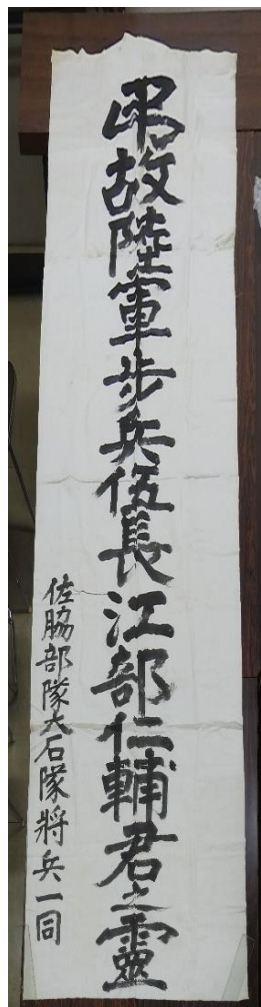 弔故陸軍步兵伍長江部仁輔君之靈
佐脇部隊大石隊將兵一同